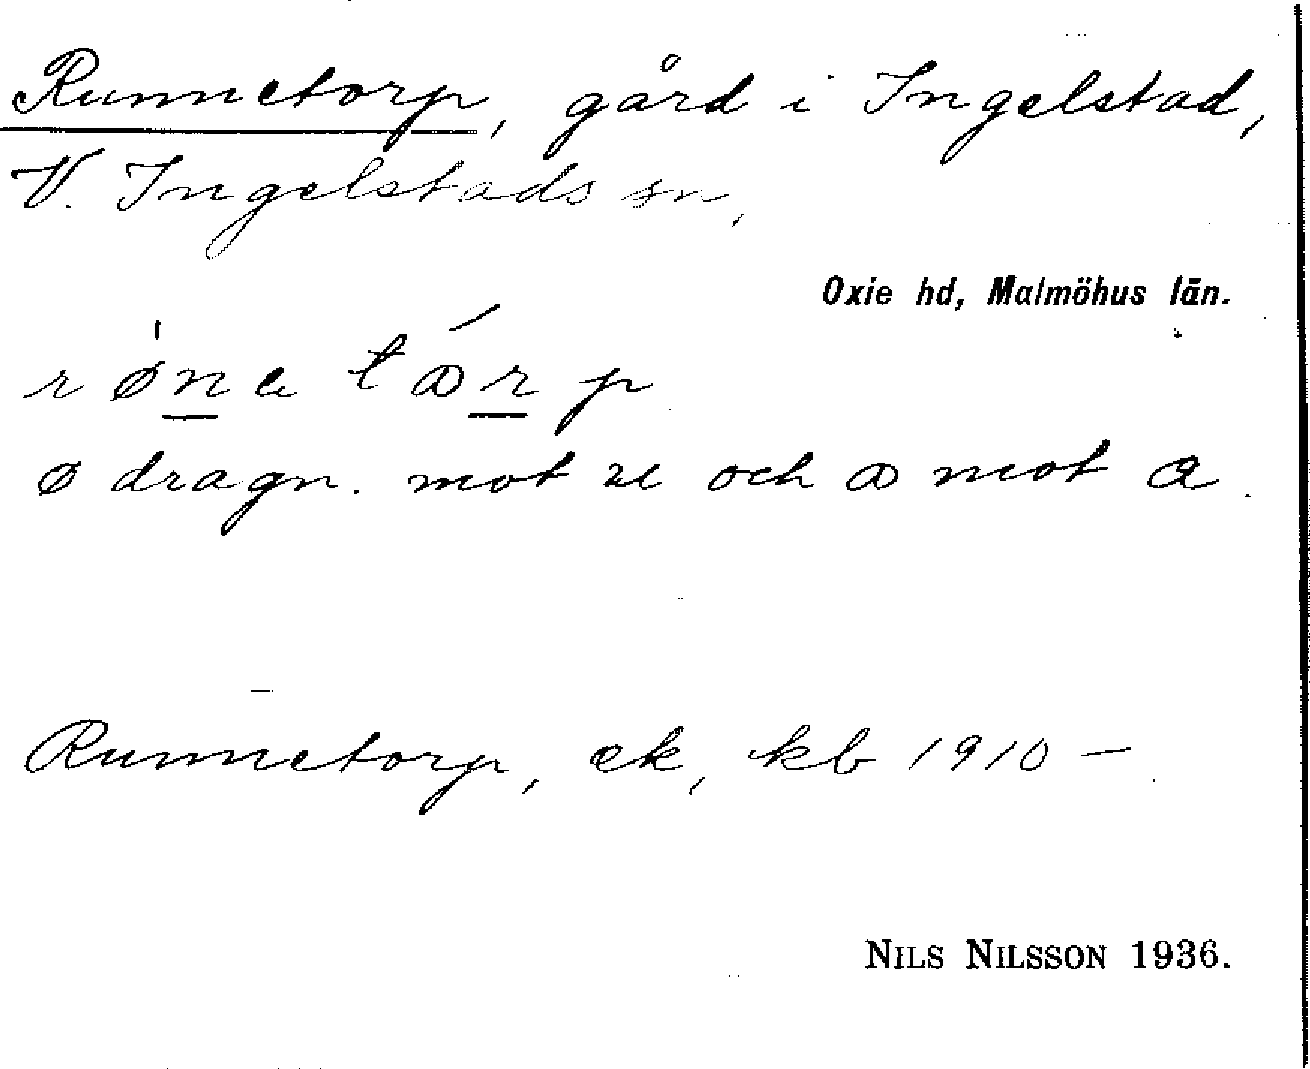 Runnetorp, gård i Ingelstad,
V. Ingelstads sn,
Oxie hd, Malmöhus län.
røne tɷrp
ø dragn. mot u och ɷ mot a.
Runnetorp, ek, kb 1910 –
NILS NILSSON 1936.